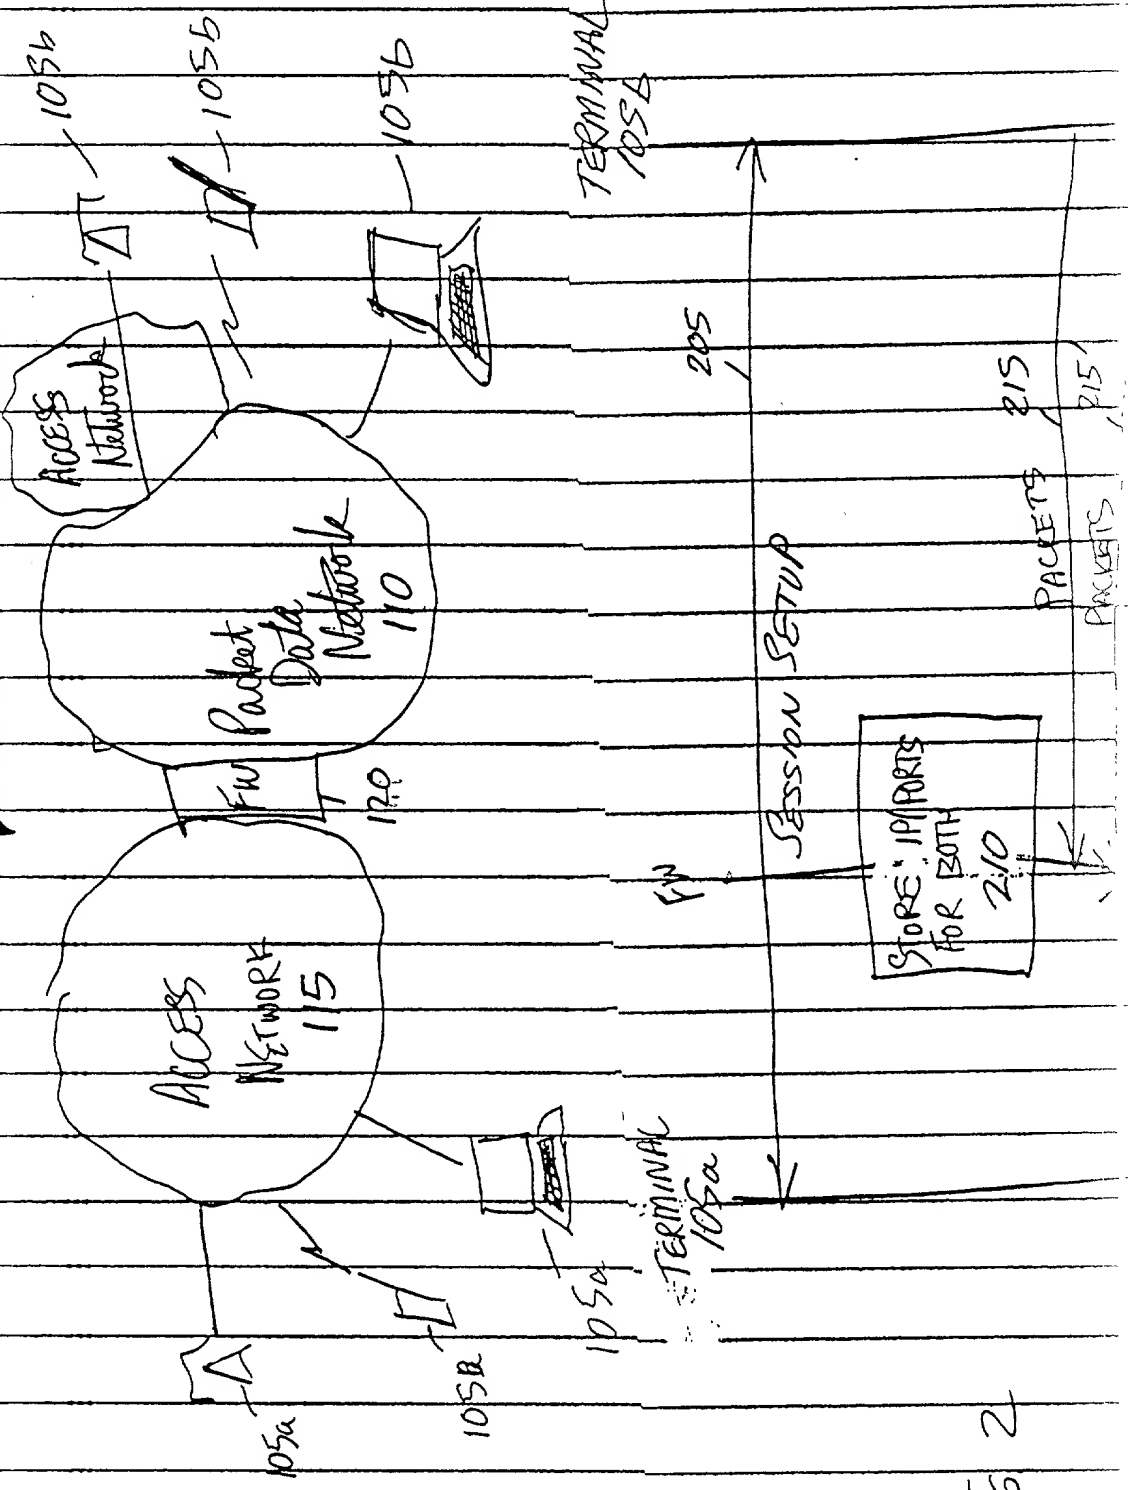 105b
105b
105b
ACCESS
Network
Packet
Data
Network
110
FW
120
ACCESS
NETWORK
115
105a
105a
105a
TERMINAL
105b
FW
TERMINAL
105a
205
SESSION SETUP
STORE IP/PORTS
FOR BOTH
210
215
PACKETS
215
PACKETS
2